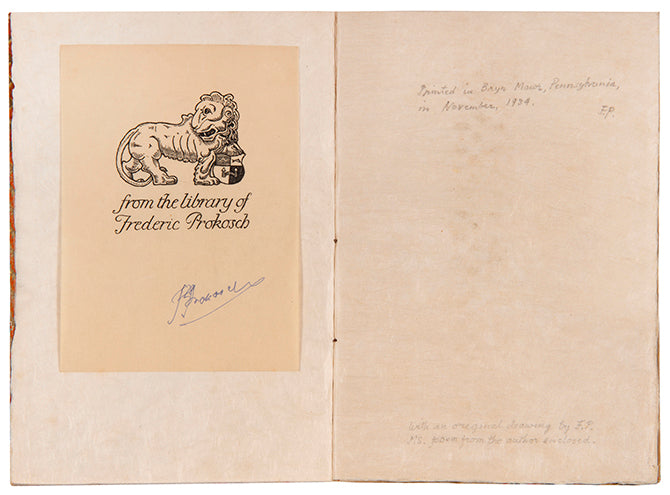 from the library of
Frederic Prokosch
FProkosch
Printed in Bryn Mawr, Pennsylvania,
in November, 1934.
F.P.
With an original drawing by F.P.
MS. poem from the author enclosed.